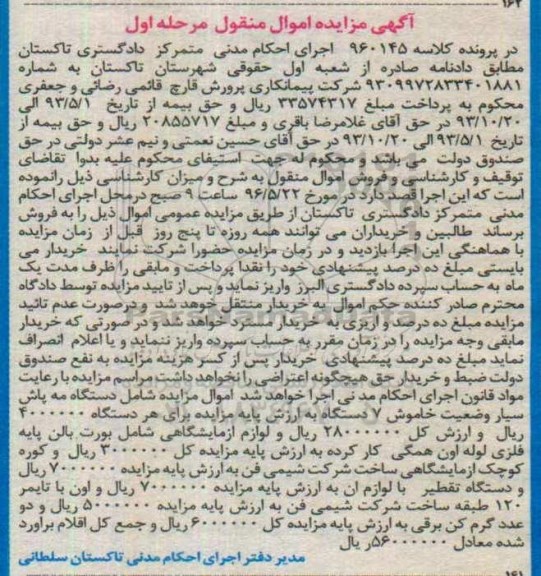 ۱۶۲
آگهی مزایده اموال منقول مرحله اول
در پرونده کلاسه ۹۶۰۱۴۵ اجرای احکام مدنی متمرکز دادگستری تاکستان
مطابق دادنامه صادره از شعبه اول حقوقی شهرستان تاکستان به شماره
۹۳۰۹۹۷۲۸۳۳۴۰۱۸۸۱ شرکت پیمانکاری پرورش قارچ قائمی رضائی و جعفری
محکوم به پرداخت مبلغ ۳۳۵۷۴۳۱۷ ریال و حق بیمه از تاریخ ۹۳/۵/۱ الی
۹۳/۱۰/۲۰ در حق آقای غلامرضا باقری و مبلغ ۲۰۸۵۵۷۱۷ ریال و حق بیمه از
تاریخ ۹۳/۵/۱ الی ۹۳/۱۰/۲۰ در حق آقای حسین نعمتی و نیم عشر دولتی در حق
صندوق دولت می باشد و محکوم له جهت استیفای محکوم علیه بدوا تقاضای
توقیف و کارشناسی و فروش اموال منقول به شرح و میزان کارشناسی ذیل رانموده
است که این اجرا قصد دارد در مورخ ۹۶/۵/۲۲ ساعت ۹ صبح درمحل اجرای احکام
مدنی متمرکز دادگستری تاکستان از طریق مزایده عمومی اموال ذیل را به فروش
برساند طالبین و خریداران می توانند همه روزه تا پنج روز قبل از زمان مزایده
با هماهنگی این اجرا بازدید و در زمان مزایده حضورا شرکت نمایند خریدار می
بایستی مبلغ ده درصد پیشنهادی خود را نقدا پرداخت و مابقی را ظرف مدت یک
ماه به حساب سپرده دادگستری البرز واریز نماید و پس از تایید مزایده توسط دادگاه
محترم صادر کننده حکم اموال به خریدار منتقل خواهد شد و درصورت عدم تائید
مزایده مبلغ ده درصد واریزی به خریدار مسترد خواهد شد و در صورتی که خریدار
مابقی وجه مزایده را در زمان مقرر به حساب سپرده واریز ننماید و یا اعلام انصراف
نماید مبلغ ده درصد پیشنهادی خریدار پس از کسر هزینه مزایده به نفع صندوق
دولت ضبط و خریدار حق هیچگونه اعتراضی را نخواهد داشت مراسم مزایده با رعایت
مواد قانون اجرای احکام مدنی اجرا خواهد شد اموال مزایده شامل دستگاه مه پاش
سیار وضعیت خاموش ۷ دستگاه به ارزش پایه مزایده برای هر دستگاه ۴۰۰۰۰۰۰
ریال و ارزش کل ۲۸۰۰۰۰۰۰ ریال و لوازم آزمایشگاهی شامل بورت بالن پایه
فلزی لوله اون همگی کار کرده به ارزش پایه مزایده کل ۳۰۰۰۰۰۰ ریال و کوره
کوچک ازمایشگاهی ساخت شرکت شیمی فن به ارزش پایه مزایده ۷۰۰۰۰۰۰ ریال
و دستگاه تقطیر با لوازم ان به ارزش پایه مزایده ۷۰۰۰۰۰۰ ریال و اون با تایمر
۱۲۰ طبقه ساخت شرکت شیمی فن به ارزش پایه مزایده ۵۰۰۰۰۰۰ ریال و دو
عدد گرم کن برقی به ارزش پایه مزایده کل ۶۰۰۰۰۰۰ ریال و جمع کل اقلام براورد
شده معادل ۵۶۰۰۰۰۰۰ر یال
مدیر دفتر اجرای احکام مدنی تاکستان سلطانی
۱۶۱